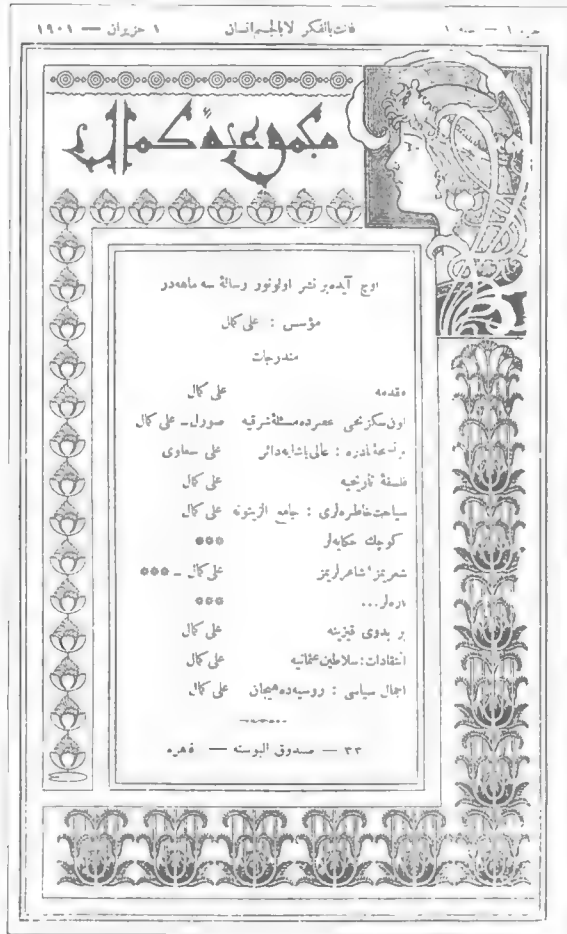 جزء ١ — سنه ١ فانت بالفكر لا بالجسم انسان ١ حزيران — ١٩٠١
مجموعهٔ كمال
اوچ آيده بر نشر اولونور رسالهٔ سه ماهه در
مؤسس : على كمال
مندرجات
مقدمه على كمال
اون سكزنجى عصرده مسئلهٔ شرقيه صورل ــ على كمال
بر نسخهٔ نادره : عالى پاشايه دائر على سعاوى
فلسفهٔ تاريخيه على كمال
سياحت خاطره لرى : جامع الزيتونه على كمال
كوچك حكايه لر ***
شعريمز، شاعرلريمز على كمال ــ ***
...
بر بدوى قيزينه على كمال
انتقادات : سلاطين عثمانيه على كمال
اجمال سياسى : روسيه ده هيجان على كمال
٣٣ — صندوق البوسته — قاهره